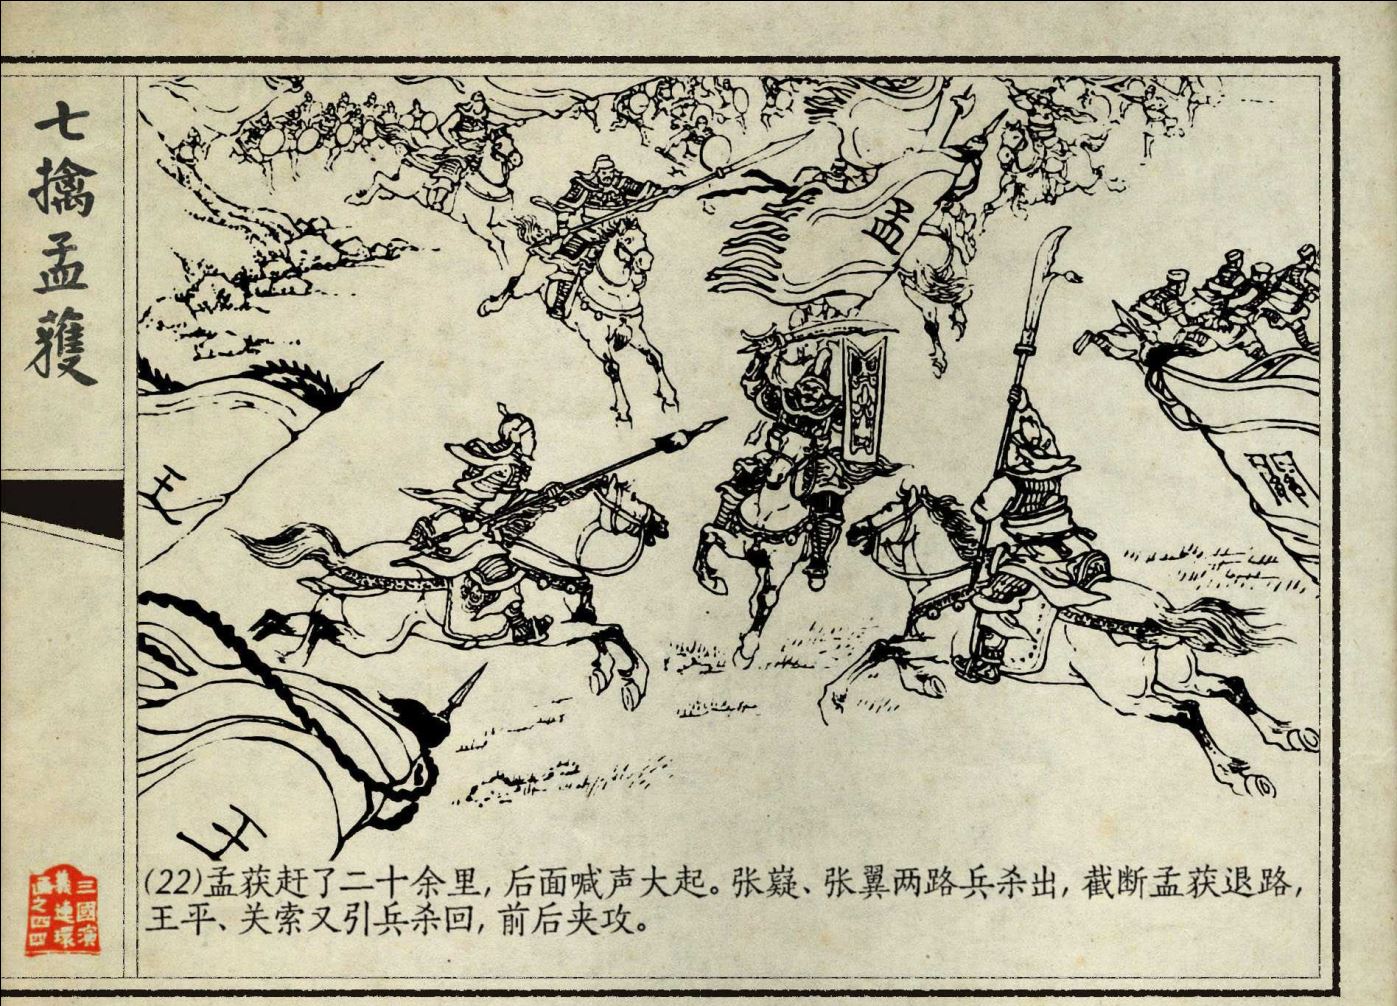 七擒孟獲
孟
王
王
(22)孟获赶了二十余里，后面喊声大起。张嶷、张翼两路兵杀出，截断孟获退路，
王平、关索又引兵杀回，前后夹攻。
三國演
義連環
畫之四四